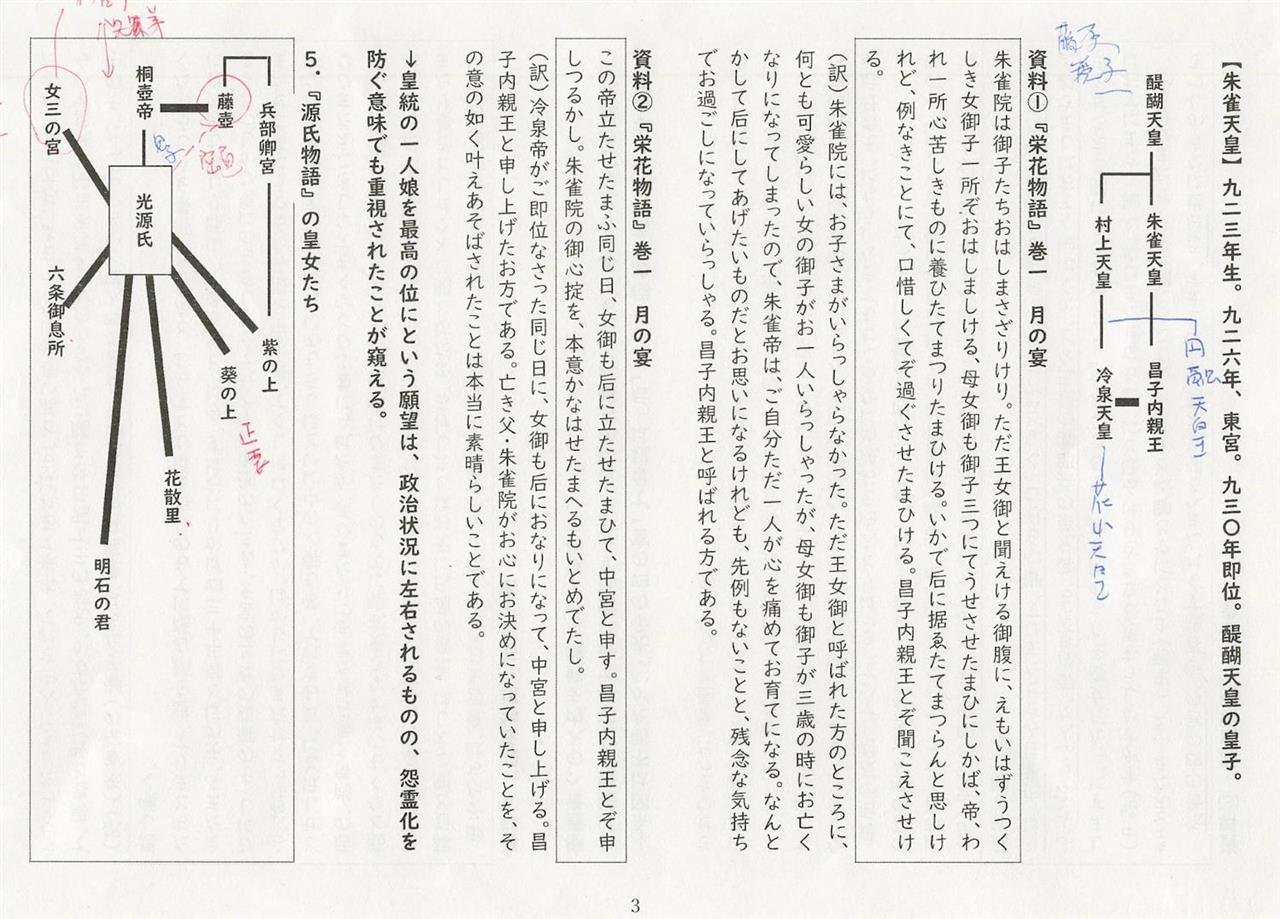 【朱雀天皇】九二三年生。九二六年、東宮。九三〇年即位。醍醐天皇の皇子。
醍醐天皇
朱雀天皇
昌子内親王
村上天皇
冷泉天皇
円融天皇
花山天皇
資料①『栄花物語』巻一　月の宴
朱雀院は御子たちおはしまさざりけり。ただ王女御と聞えける御腹に、えもいはずうつく
しき女御子一所ぞおはしましける、母女御も御子三つにてうせさせたまひにしかば、帝、わ
れ一所心苦しきものに養ひたてまつりたまひける。いかで后に据ゑたてまつらんと思しけ
れど、例なきことにて、口惜しくてぞ過ぐさせたまひける。昌子内親王とぞ聞こえさせけ
る。
（訳）朱雀院には、お子さまがいらっしゃらなかった。ただ王女御と呼ばれた方のところに、
何とも可愛らしい女の御子がお一人いらっしゃったが、母女御も御子が三歳の時にお亡く
なりになってしまったので、朱雀帝は、ご自分ただ一人が心を痛めてお育てになる。なんと
かして后にしてあげたいものだとお思いになるけれども、先例もないことと、残念な気持ち
でお過ごしになっていらっしゃる。昌子内親王と呼ばれる方である。
資料②『栄花物語』巻一　月の宴
この帝立たせたまふ同じ日、女御も后に立たせたまひて、中宮と申す。昌子内親王とぞ申
しつるかし。朱雀院の御心掟を、本意かなはせたまへるもいとめでたし。
（訳）冷泉帝がご即位なさった同じ日に、女御も后におなりになって、中宮と申し上げる。昌
子内親王と申し上げたお方である。亡き父・朱雀院がお心にお決めになっていたことを、そ
の意の如く叶えあそばされたことは本当に素晴らしいことである。
↓皇統の一人娘を最高の位にという願望は、政治状況に左右されるものの、怨霊化を
防ぐ意味でも重視されたことが窺える。
５．『源氏物語』の皇女たち
兵部卿宮
藤壺
桐壺帝
女三の宮
光源氏
紫の上
葵の上
正妻
花散里
明石の君
六条御息所
3